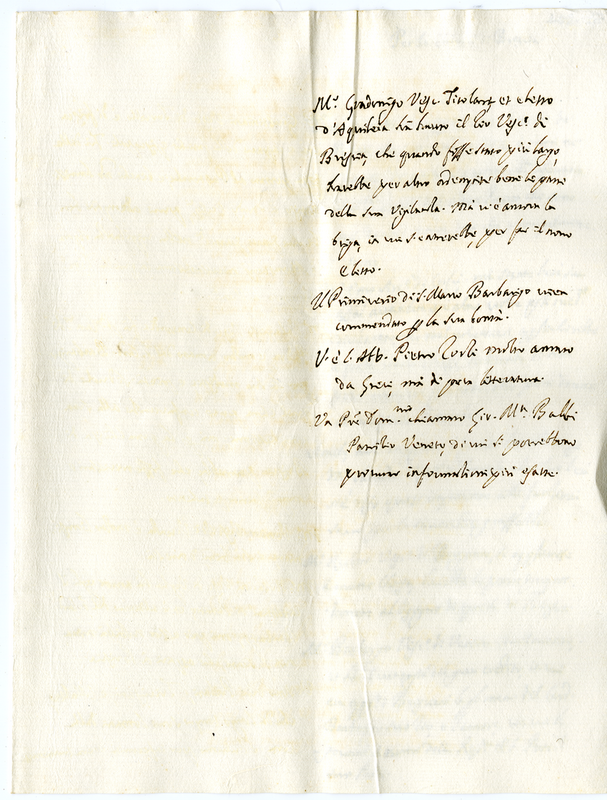 M.r Gradenigo Vesc. Titolare et eletto
d'Aquileia
Brescia, che quando fosse stato più largo,
havrebbe per altro adempite bene le parti
della sua Vigilanza. Mà vi è ancora la
briga, in cui si entrerebbe, per far il novo
Eletto.
Il Primicerio di S. Marco Barbarigo vien
commendato p la sua bontà.
V'è l'Abb. Pietro molto amato
da Greci, mà di poca letteratura.
Un Prè Dom.no chiamato Gio. M.a Balbi
Patrilio Veneto, di cui si potrebbono
procurar informationi più esatte.